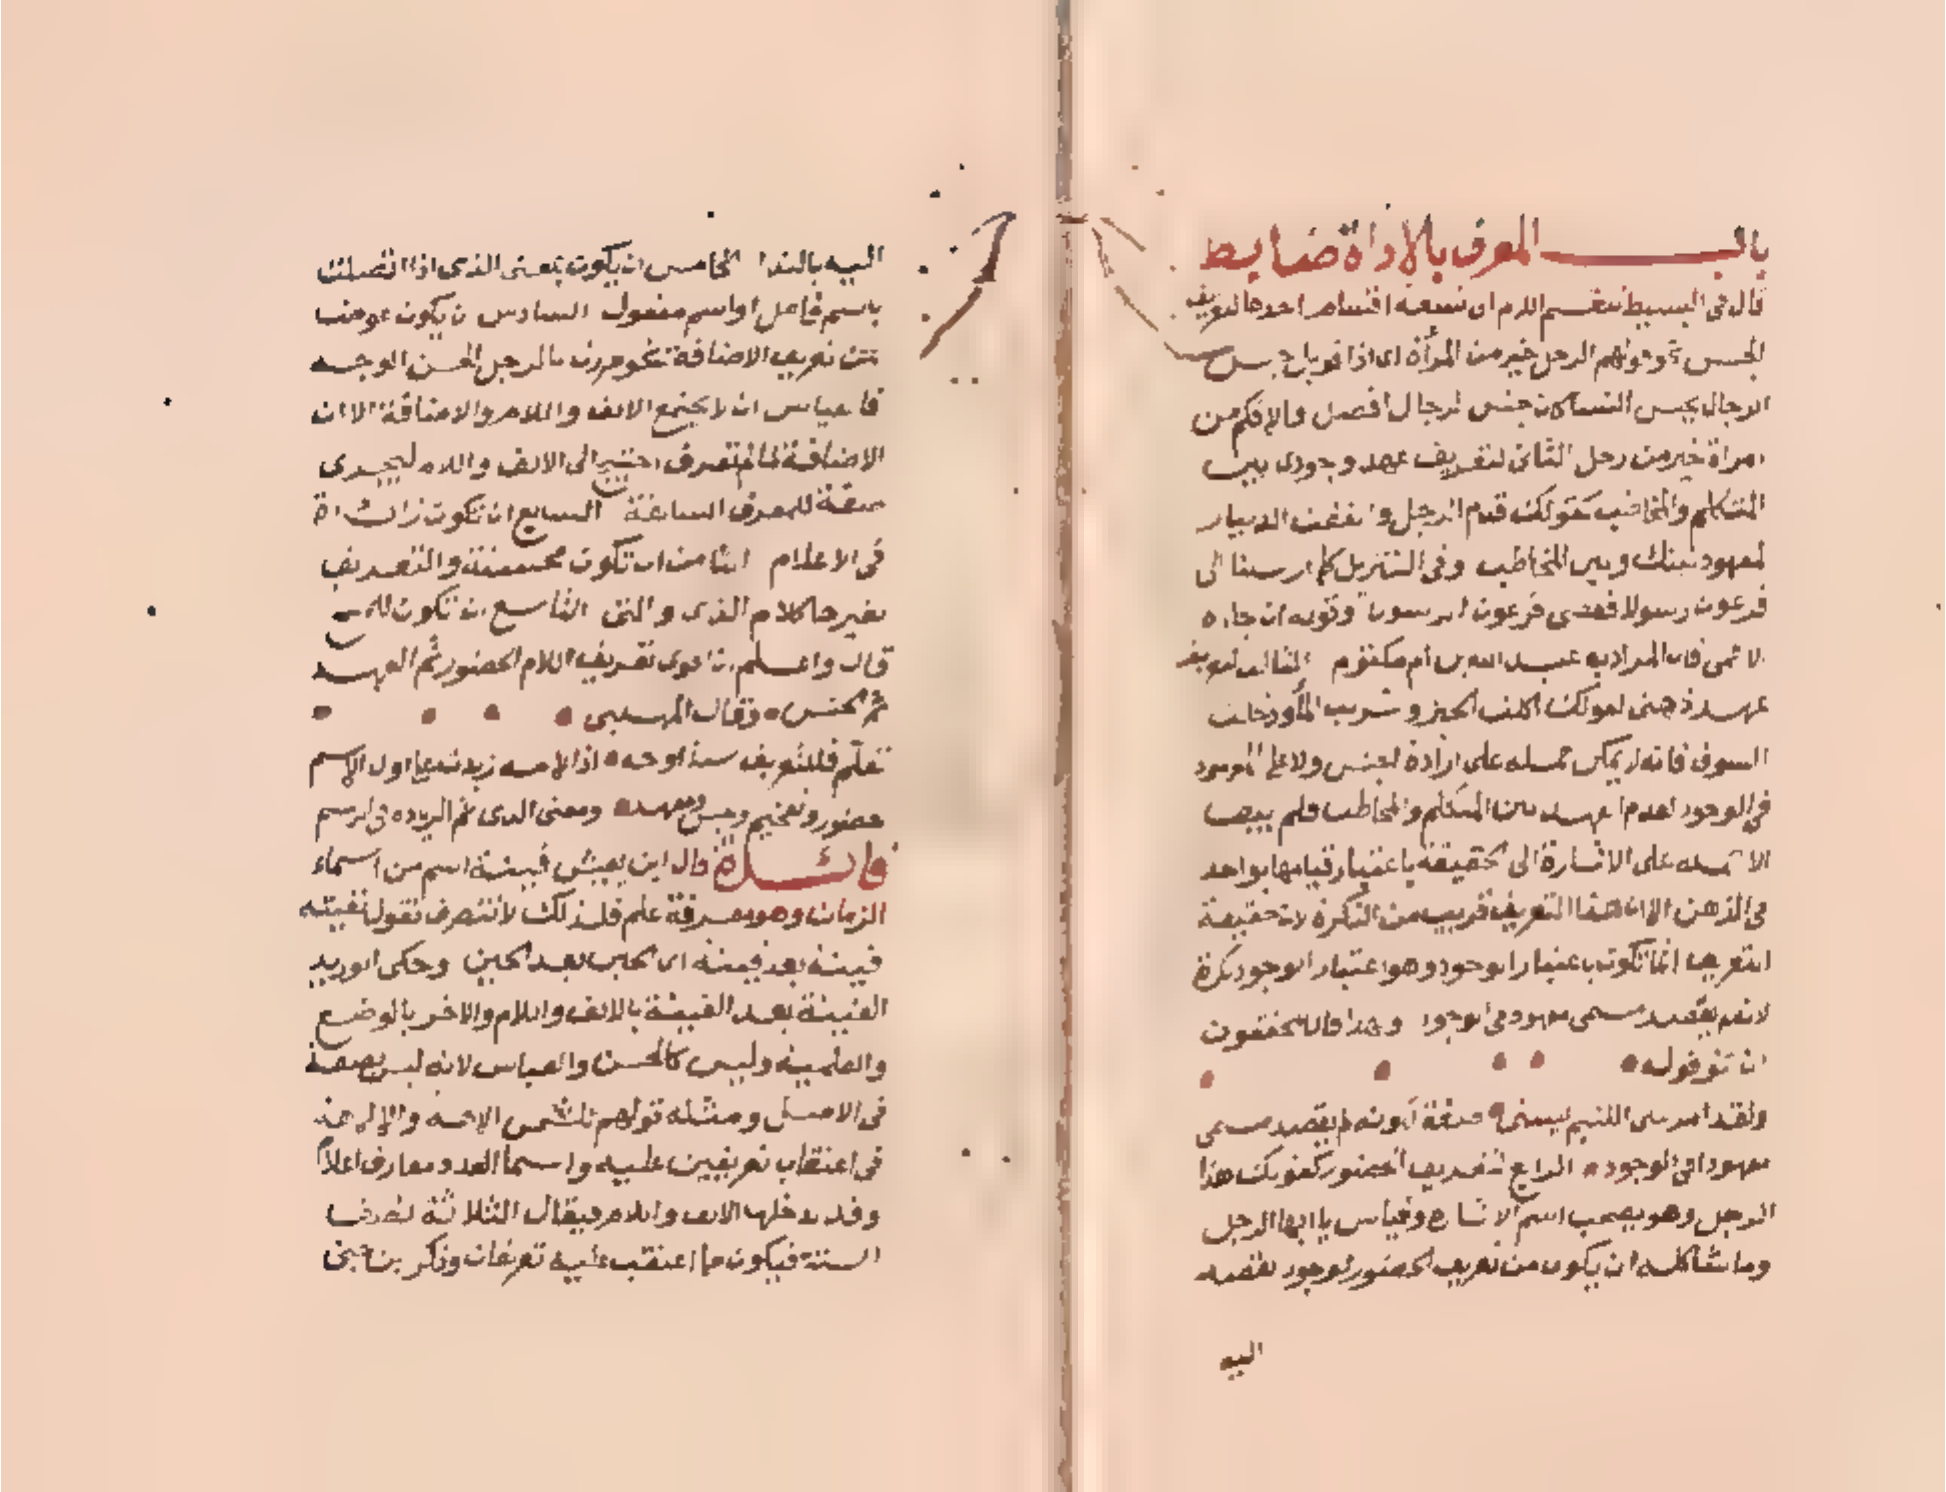 باب المعرف بالاداة ضابط
قال في البسيط تنقسم اللام الى تسعة اقسام احدها لتعريف
الجنس نحو قولهم الرجل خير من المرأة اى اذا قوبل جنس
الرجال بجنس النساء كان جنس الرجال افضل والا فكم من
امراة خير من رجل الثانى لتعريف عهد وجودى بين
المتكلم والمخاطب كقولك قدم الرجل وانفقت الدينار
لمعهود بينك وبين المخاطب وفى التنزيل كما ارسلنا الى
فرعون رسولا فعصى فرعون الرسول وقوله ان جاءه
الاعمى فان المراد به عبد الله بن ام مكتوم الثالث لتعريف
عهد ذهنى كقولك اكلت الخبز وشربت الماء ودخلت
السوق فانه لا يمكن حمله على ارادة الجنس ولا على المعهود
فى الوجود لعدم العهد بين المتكلم والمخاطب فلم يبق
الا حمله على الاشارة الى الحقيقة باعتبار قيامها بواحد
فى الذهن الا ان هذا التعريف قريب من النكرة لان حقيقة
التعريف انما تكون باعتبار الوجود وهو باعتبار الوجود نكرة
لانه لم يقصد مسمى معهود فى الوجود ولهذا قال المحققون
ان نحو قوله
ولقد امر على اللئيم يسبنى صفة لكونه لم يقصد مسمى
معهودا فى الوجود الرابع لتعريف الحضور كقولك هذا
الرجل وهو يصحب اسم الاشارة وقياس يا ايها الرجل
وما شاكله ان يكون من تعريف الحضور لوجود القصد
اليه
اليه بالندا الخامس ان يكون بمعنى الذى اذا اتصلت
باسم فاعل او اسم مفعول السادس ان يكون عوضا
من تعريف الاضافة نحو مررت بالرجل الحسن الوجه
فالقياس ان لا يجتمع الالف واللام والاضافة الا ان
الاضافة لما لم تعرف احتيج الى الالف واللام ليجرى
صفة للمعرف السابقة السابع ان تكون زائدة
فى الاعلام الثامن ان تكون محسنة والتعريف
بغيرها كلام الذى والتى التاسع ان تكون للمح
قال واعلم ان اقوى تعريف اللام الحضور ثم العهد
ثم الجنس وقال المهلبى
تعلم فللتعريف ستة اوجه اذا لامه زيدت على اول الاسم
حضور وتفخيم وجنس ومعهد ومعنى الذى ثم الزيادة فى الرسم
فائدة قال ابن يعيش فينة اسم من اسماء
الزمان وهو معرفة علم فلذلك لا تنصرف تقول لقيته
فينة بعد فينة اى الحين بعد الحين وحكى ابو زيد
الفينة بعد الفينة بالالف واللام والاخر بالوضع
والعلمية وليس كالحسن والعباس لانه ليس بصفة
فى الاصل ومثله قولهم للشمس الاهة والالاهة
فى اعتقاب تعريفين عليه واسما العدد معارف اعلام
وقد يدخلها الالف واللام فيقال الثلاثة نصف
الستة فيكون مما اعتقب عليه تعريفان وذكر بن جنى